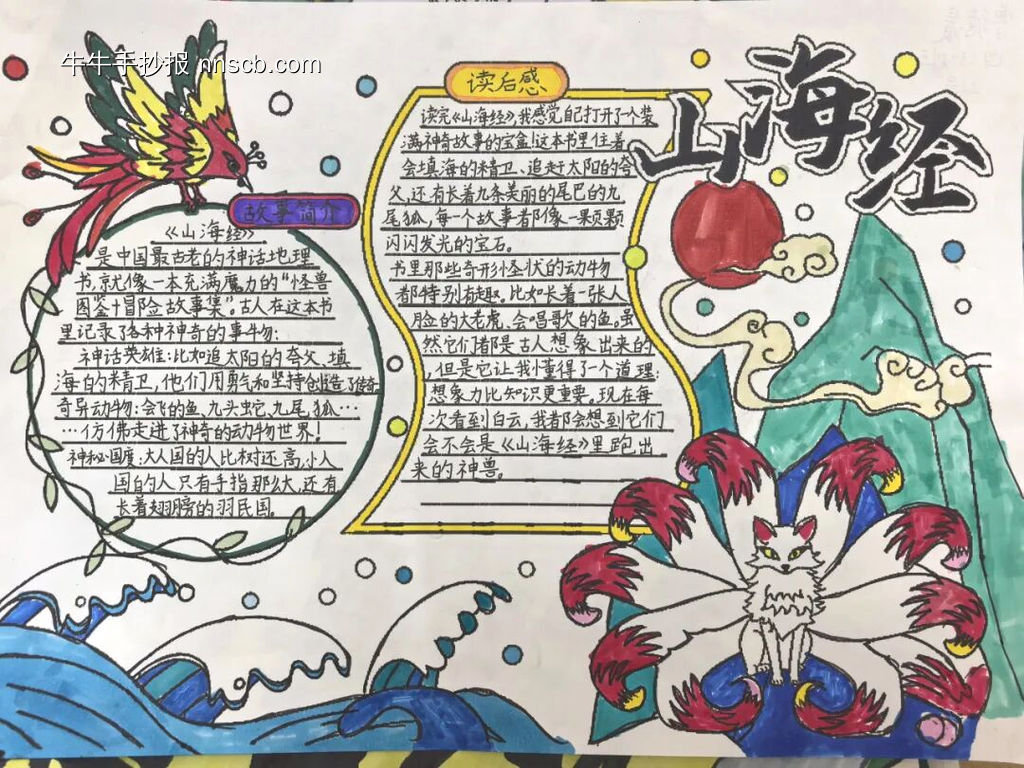 牛牛手抄报 nnscb.com
山海经
故事简介
《山海经》
是中国最古老的神话地理
书,就像一本充满魔力的“怪兽
图鉴+冒险故事集”。古人在这本书
里记录了各种神奇的事物:
神话英雄:比如追太阳的夸父、填
海的精卫,他们用勇气和坚持创造了传奇
奇异动物:会飞的鱼、九头蛇、九尾狐…
…仿佛走进了神奇的动物世界!
神秘国度:大人国的人比树还高,小人
国的人只有手指那么大,还有
长着翅膀的羽民国。
读后感
读完《山海经》,我感觉自己打开了一个装
满神奇故事的宝盒!这本书里住着
会填海的精卫、追赶太阳的夸
父,还有长着九条美丽的尾巴的九
尾狐,每一个故事都像一颗颗
闪闪发光的宝石。
书里那些奇形怪状的动物
都特别有趣。比如长着一张人
脸的大老虎、会唱歌的鱼。虽
然它们都是古人想象出来的
,但是它让我懂得了一个道理:
想象力比知识更重要。现在每
次看到白云,我都会想到它们
会不会是《山海经》里跑出
来的神兽。